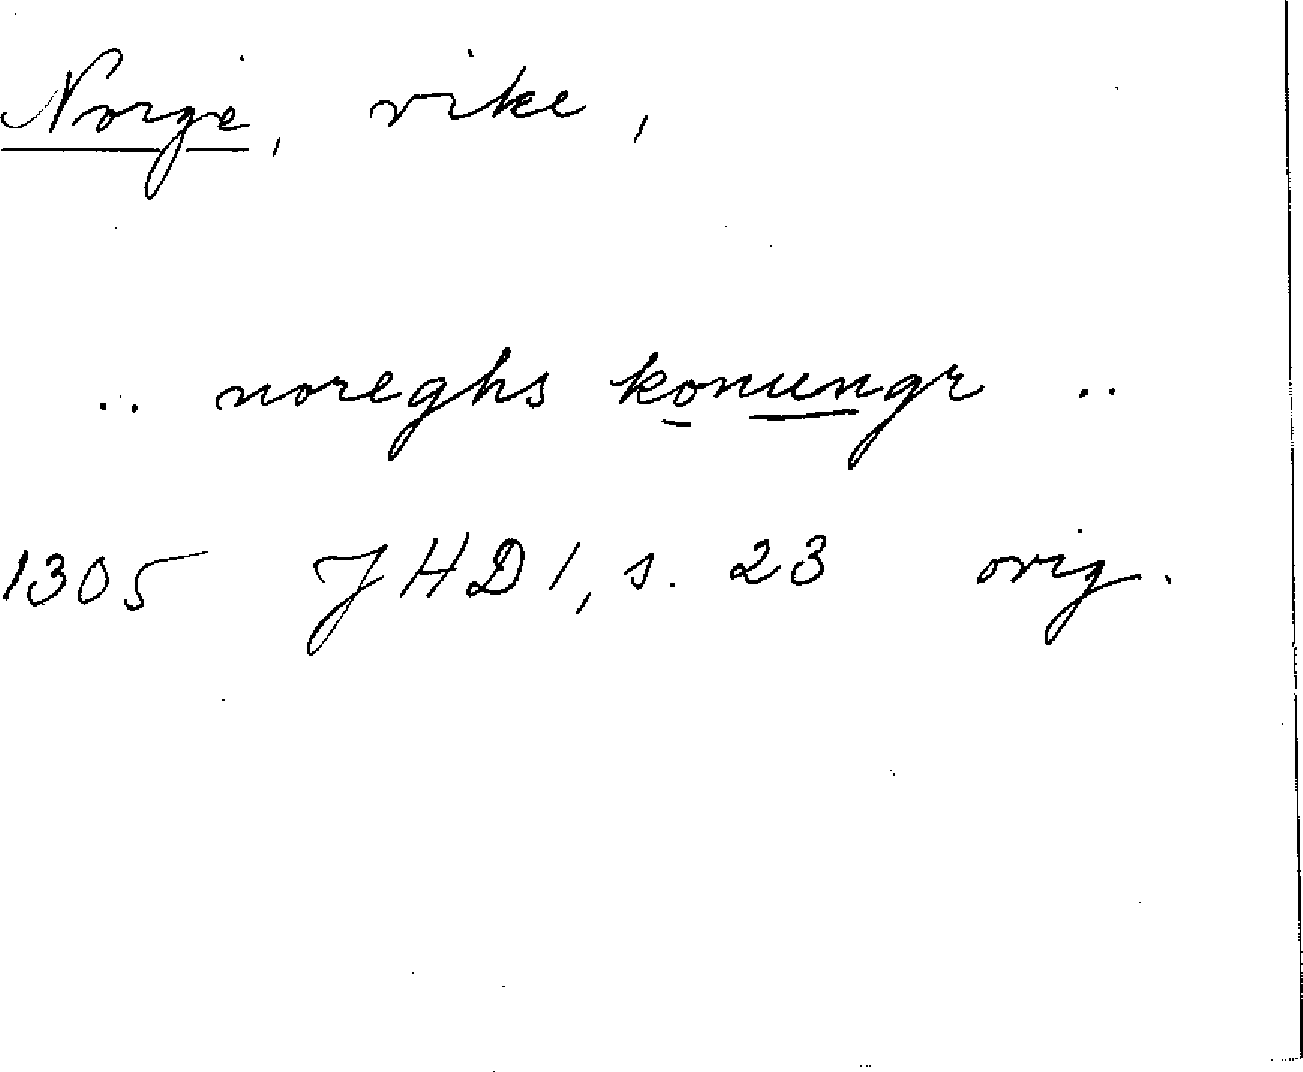 Norge, rike,
.. noreghs konungr ..
1305 JHD 1, s. 23 orig.